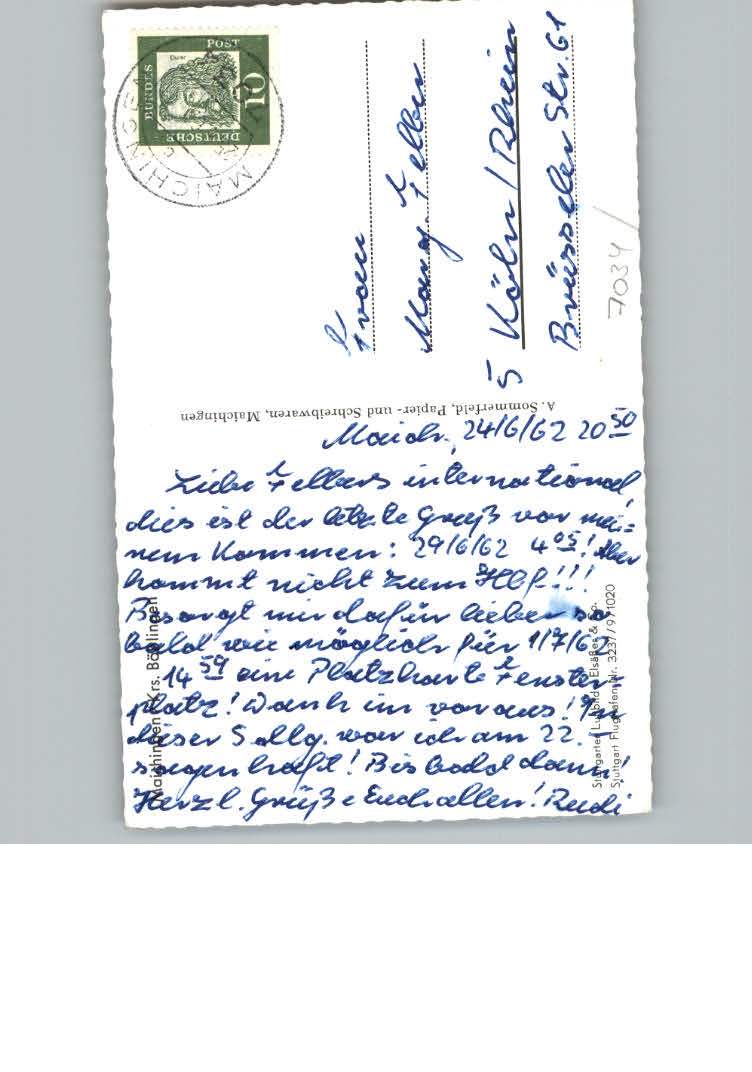 DEUTSCHE
BUNDES
POST
10
Dürer
MAICHINGEN
Frau
Marg. Felber
5 Köln / Rhein
Brüsseler Str. 61
7034 /
A. Sommerfeld, Papier- und Schreibwaren, Maichingen
Maich., 24/6/62 20 50
Liebe Felbers international,
dies ist der letzte Gruß vor mei=
nem Kommen: 29/6/62 4 05! Aber
kommt nicht zum Hbf!!!
Besorgt mir dafür lieber so
bald wie möglich für 1/7/62
14 59 eine Platzkarte Fenster-
platz! Dank im voraus! In
dieser war ich am 22.
sagenhaft! Bis bald dann!
Herzl. Grüße Euch allen! Rudi
Maichingen Krs. Böblingen
Stuttgarter Luftbild Elsäßer & Co.
Stuttgart Flughafen Nr. 3237/9 971020